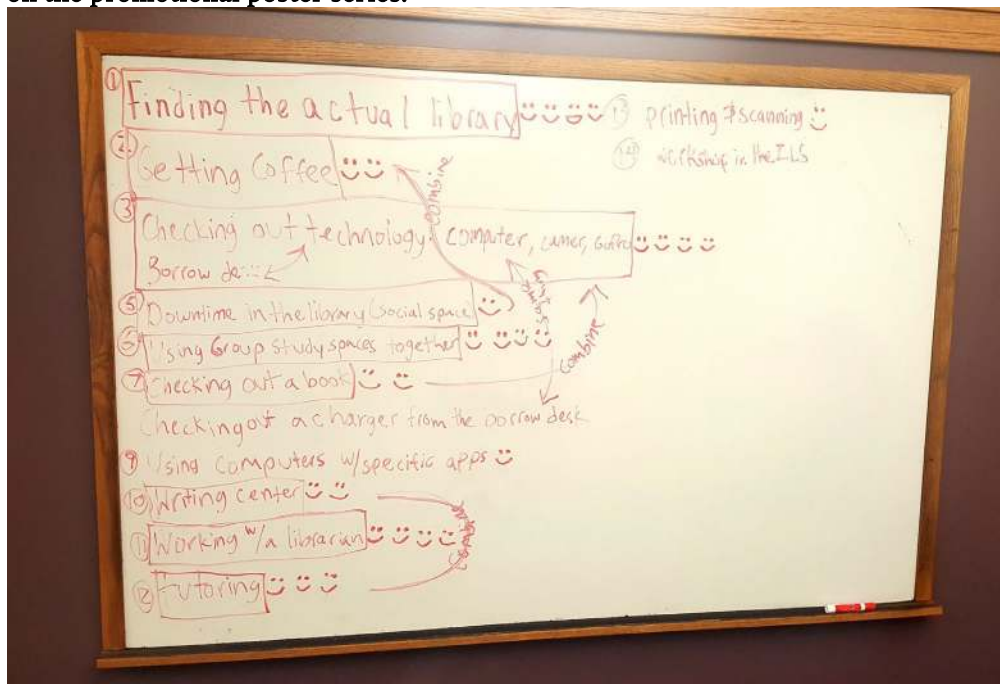 on the promotional poster series.
① Finding the actual library
② Getting Coffee
③ Checking out technology: computer,
Borrow
combine
⑤ Downtime in the library (social space
⑥ Using Group study spaces together
⑦ Checking out a book
combine
Checking out a charger from the borrow desk
⑨ Using computers w/specific apps
⑩ Writing center
⑪ Working w/a librarian
combine
⑫ tutoring
⑬ printing & scanning
workshop in the ILS